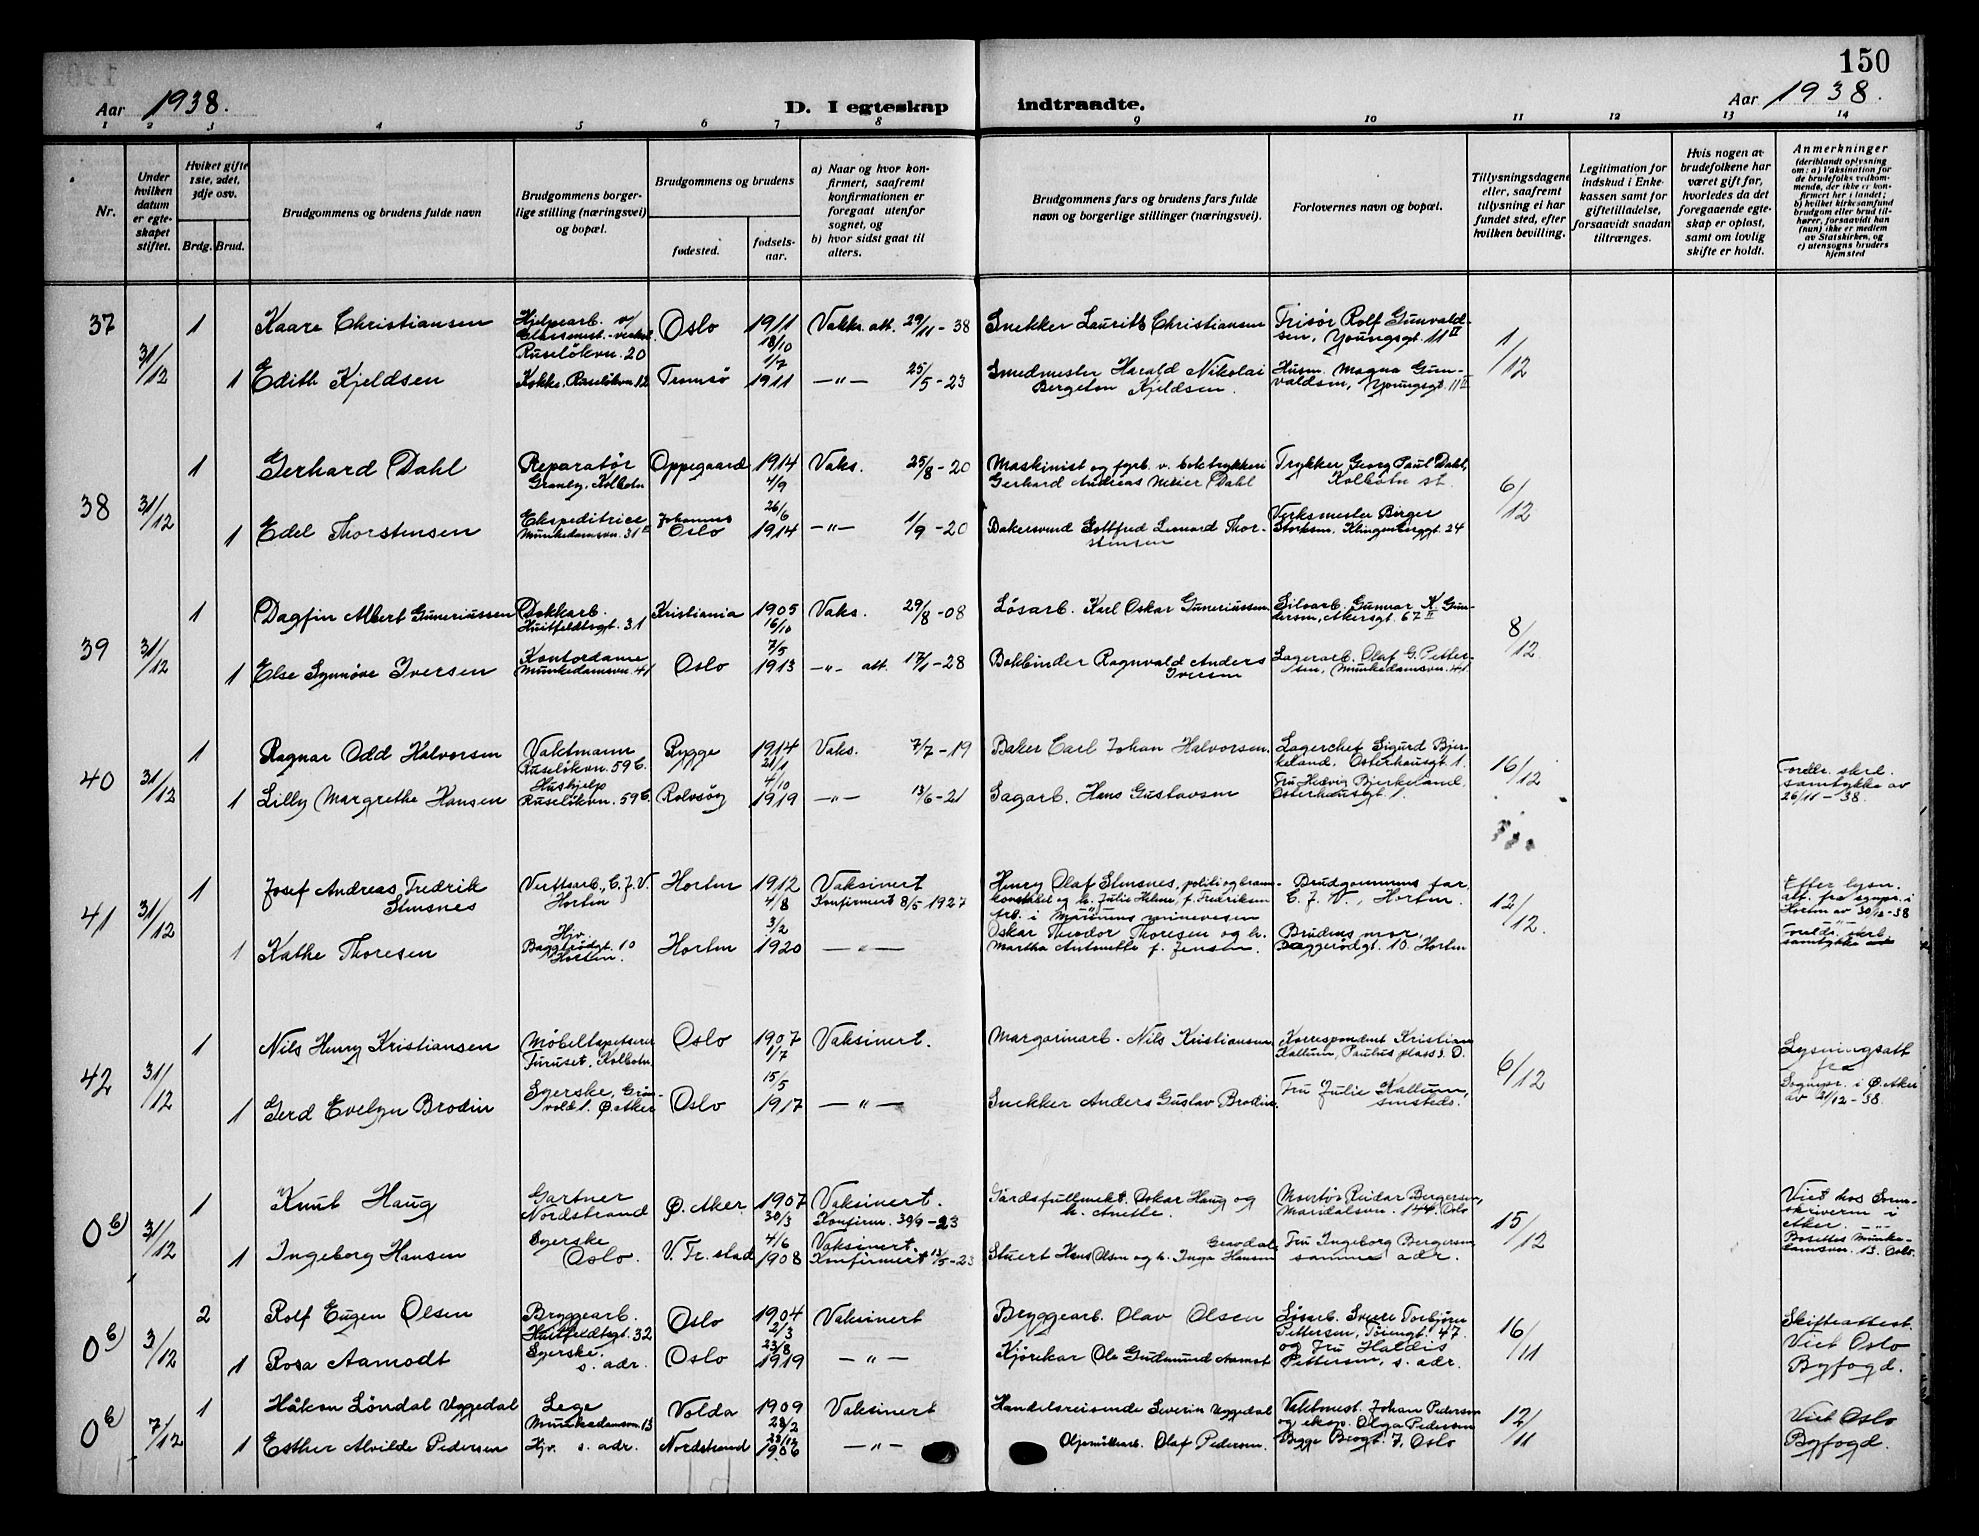 150
Aar 1938. D. I egteskap indtraadte. Aar 1938.
1 2 3 4 5 6 7 8 9 10 11 12 13 14
Nr.
Under hvilken datum er egteskapet stiftet.
Hvilket gifte 1ste, 2det, 3dje osv.
Brdg. Brud.
Brudgommens og brudens fulde navn
Brudgommens borgerlige stilling (næringsvei) og bopæl.
Brudgommens og brudens
fødested.
fødselsaar.
a) Naar og hvor konfirmert, saafremt konfirmationen er foregaat utenfor sognet, og
b) hvor sidst gaat til alters.
Brudgommens fars og brudens fars fulde navn og borgerlige stillinger (næringsvei).
Forlovernes navn og bopæl.
Tillysningsdagene eller, saafremt tillysning ei har fundet sted, efter hvilken bevilling.
Legitimation for indskud i Enkekassen samt for giftetilladelse, forsaavidt saadan tiltrænges.
Hvis nogen av brudefolkene har været gift før, hvorledes da det foregaaende egteskap er opløst, samt om lovlig skifte er holdt.
Anmerkninger
(deriblandt oplysning om: a) Vaksination for de brudefolks vedkommende, der ikke er konfirmert her i landet;
b) hvilket kirkesamfund brudgom eller brud tilhører, forsaavidt han (hun) ikke er medlem av Statskirken, og
c) utensogns bruders hjemsted
37 31/12 1 Kaare Christiansen Hjelpearb. v/ Ruseløkvn. 20 Oslo 1911 18/10 Vakks. att. 29/11-38 Snekker Laurits Christiansen Frisør Rolf Gunvaldsen, Youngsgt. 11 II 1/12
1 Edith Kjeldsen Kokke, Ruseløkvn. 12 Tromsø 1/7 1911 —"— 25/5-23 Smedmester Harald Nikolai Bergeton Kjeldsen. Husm. Magna Gunvaldsen, Youngsgt. 11 II
38 31/12 1 Gerhard Dahl Reparatør Granly, Kolbotn Oppegaard 1914 4/9 Vaks. 25/8-20 Maskinist og fyrb. v. boktrykkeri Gerhard Andreas Meier Dahl Trykker Georg Paul Dahl, Kolbotn st. 6/12
1 Edel Thorstensen Ekspeditrice Munkedamsvn. 31 II Johannes Oslo 26/6 1914 —"— 1/9-20 Bakersvend Gottfred Leonard Thorstensen Verksmester Birger Storksen, Klingenberggt. 24
39 31/12 1 Dagfin Albert Guneriussen Dokkarb. Huitfeldtsgt. 31 Kristiania 1905 16/10 Vaks. 29/8-08 Løsarb. Karl Oskar Guneriussen. Siloarb. Gunnar K. Gundersen, Akersgt. 67 II 8/12
1 Else Synnøve Iversen Kontordame Munkedamsvn. 41 Oslo 7/5 1913 —"— att. 17/1-28 Bokbinder Ragnvald Anders Iversen Lagerarb. Olaf G. Pettersen, Munkedamsvn. 41.
40 31/12 1 Ragnar Odd Halvorsen Vaktmann Ruseløkvn. 59 C. Rygge 1914 21/1 Vaks. 7/7-19 Baker Carl Johan Halvorsen. Lagerchef Sigurd Bjerkeland, Osterhausgt. 1. 16/12
1 Lilly Margrethe Hansen Hushjelp Ruseløkvn. 59 C. Rolvsøy 4/10 1919 —"— 13/6-21 Sagarb. Hans Gustavsen Fru Hedvig Bjerkeland, Osterhausgt. 1. Foreldr. skrl. samtykke av 26/11-38.
41 31/12 1 Josef Andreas Fredrik Stensnes Verftsarb., C.J.V. Horten Horten 1912 4/8 Vaksinert Konfirmert 8/5 1927 Henry Olaf Stensnes, politi og brannkonstabel og h. Julie Helene, f. Fredriksen Brudgommens far, C.J.V., Horten. 12/12 Efter lysn. att. fra sognpr. i Horten av 30/12-38
1 Kathe Thoresen Hjv. Baggerødgt. 10 Horten. Horten 3/2 1920 —"— Oskar Theodor Thoresen og h. Martha Antonette f. Jensen. Brudens mor, Baggerødgt. 10. Horten Foreldr. skrl. samtykke
42 31/12 1 Nils Henry Kristiansen Møbeltapetserer Furuset, Kolbotn Oslo 1907 1/7 Vaksinert. Margarinarb. Nils Kristiansen. Korrespondent Kristian Kallum, Paulus plass 3. O. 6/12 Lysningsatt fra Sognepr. i Ø. Aker av 21/12-38.
1 Gerd Evelyn Brodin Syerske, Grønvold 1. Ø. Aker Oslo 15/5 1917 —"— Snekker Anders Gustav Brodin. Fru Julie Kallum, smsteds.
0 b) 3/12 1 Knut Haug Gartner Nordstrand Ø. Aker 1907 30/3 Vaksinert. Konfirm. 30/9-23 Gårdsfullmekt. Oskar Haug og h. Anette. Montør Reidar Bergersen, Maridalsvn. 144. Oslo 15/12 Viet hos Sorenskriveren i Aker. Bosettes Munkedamsvn. 13. Oslo.
1 Ingeborg Hansen Syerske Oslo. V. Fr. stad 4/6 1908 Vaksinert. Konfirmert 13/5-23 Stuert Hans Olsen og h. Inga Hansen Fru Ingeborg Bergersen samme adr.
0 b) 3/12 2 Rolf Eugen Olsen Bryggearb. Huitfeldtsgt. 32 Oslo 1904 2/3 Vaksinert Bryggearb. Olav Olsen Løsarb. Sverre Torbjørn Pettersen, Tøiengt. 47. og Fru Haldis Pettersen, s. adr. 16/11 Skifteattest. Viet Oslo Byfogd.
1 Rosa Aamodt Syerske. s. adr. Oslo 23/8 1919 —"— Kjørekar Ole Gudmund Aamot
0 b) 7/12 1 Håkon Løndal Uggedal Lege Munkedamsvn 13 Volda 1909 28/2 Vaksinert Handelsreisende Severin Uggedal Vaktmest. Johan Pedersen og eksp. Olga Pedersen Bygge Brogt. 7, Oslo 12/11 Viet Oslo Byfogd.
1 Esther Alvilde Pedersen Hjv. s. adr. Nordstrand 23/12 1906 —"— Oljemøllearb. Olaf Pedersen.